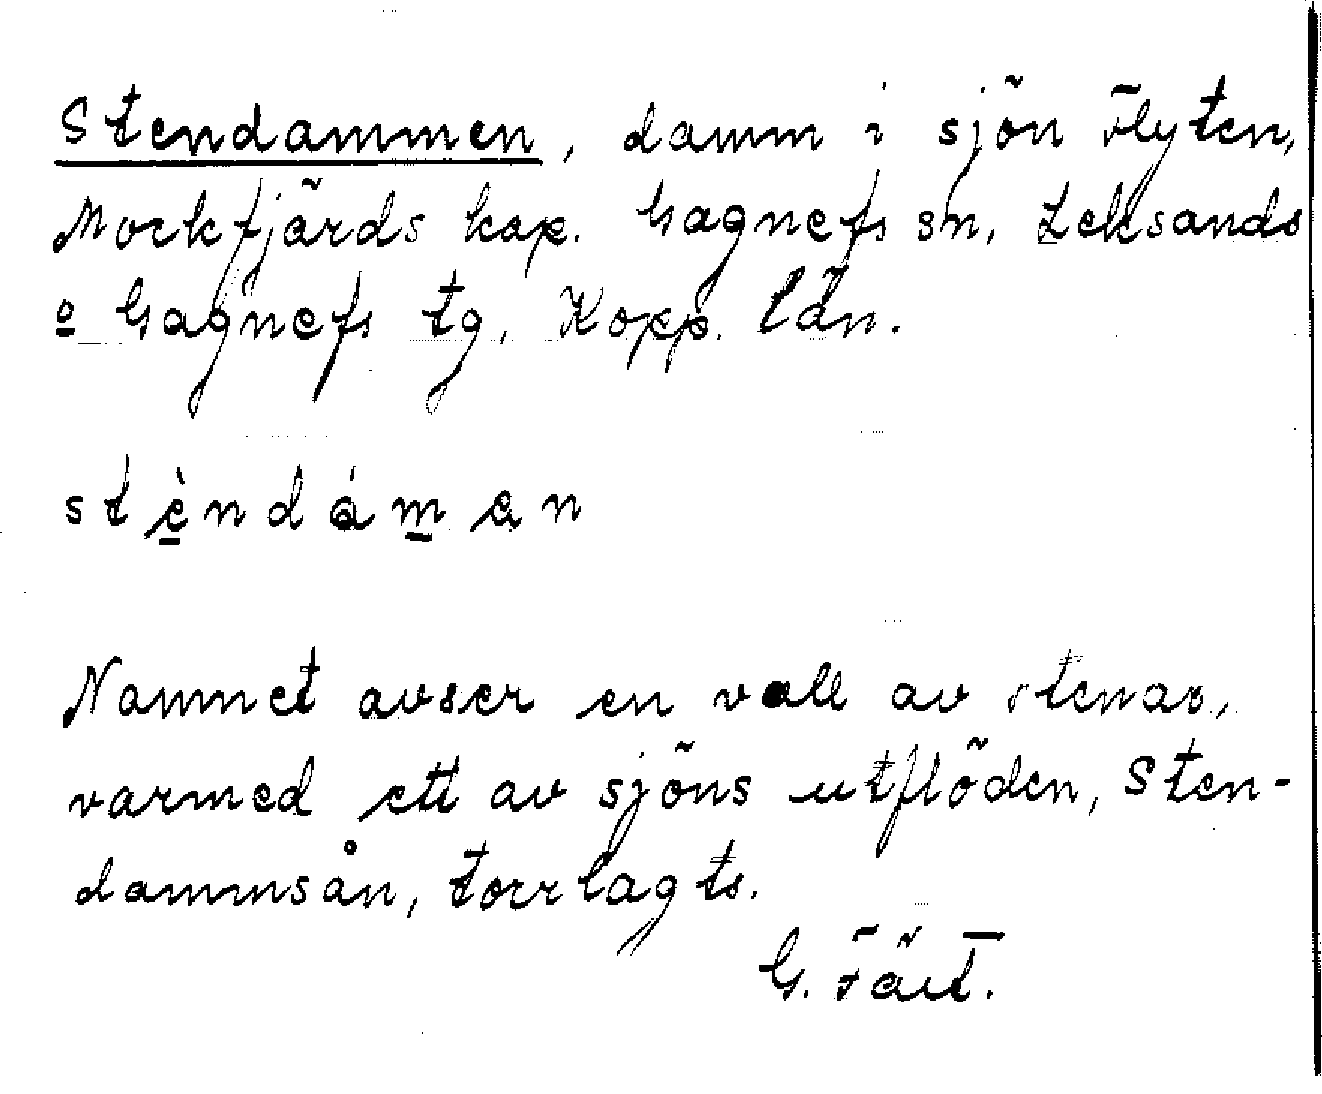 Stendammen, damm i sjön Flyten,
Mockfjärds kap. Gagnefs sn, Leksands
o Gagnefs tg, Kopp. län.
stèndáman
Namnet avser en vall av stenar,
varmed ett av sjöns utflöden, Sten-
dammsån, torrlagts.
G. Fält.